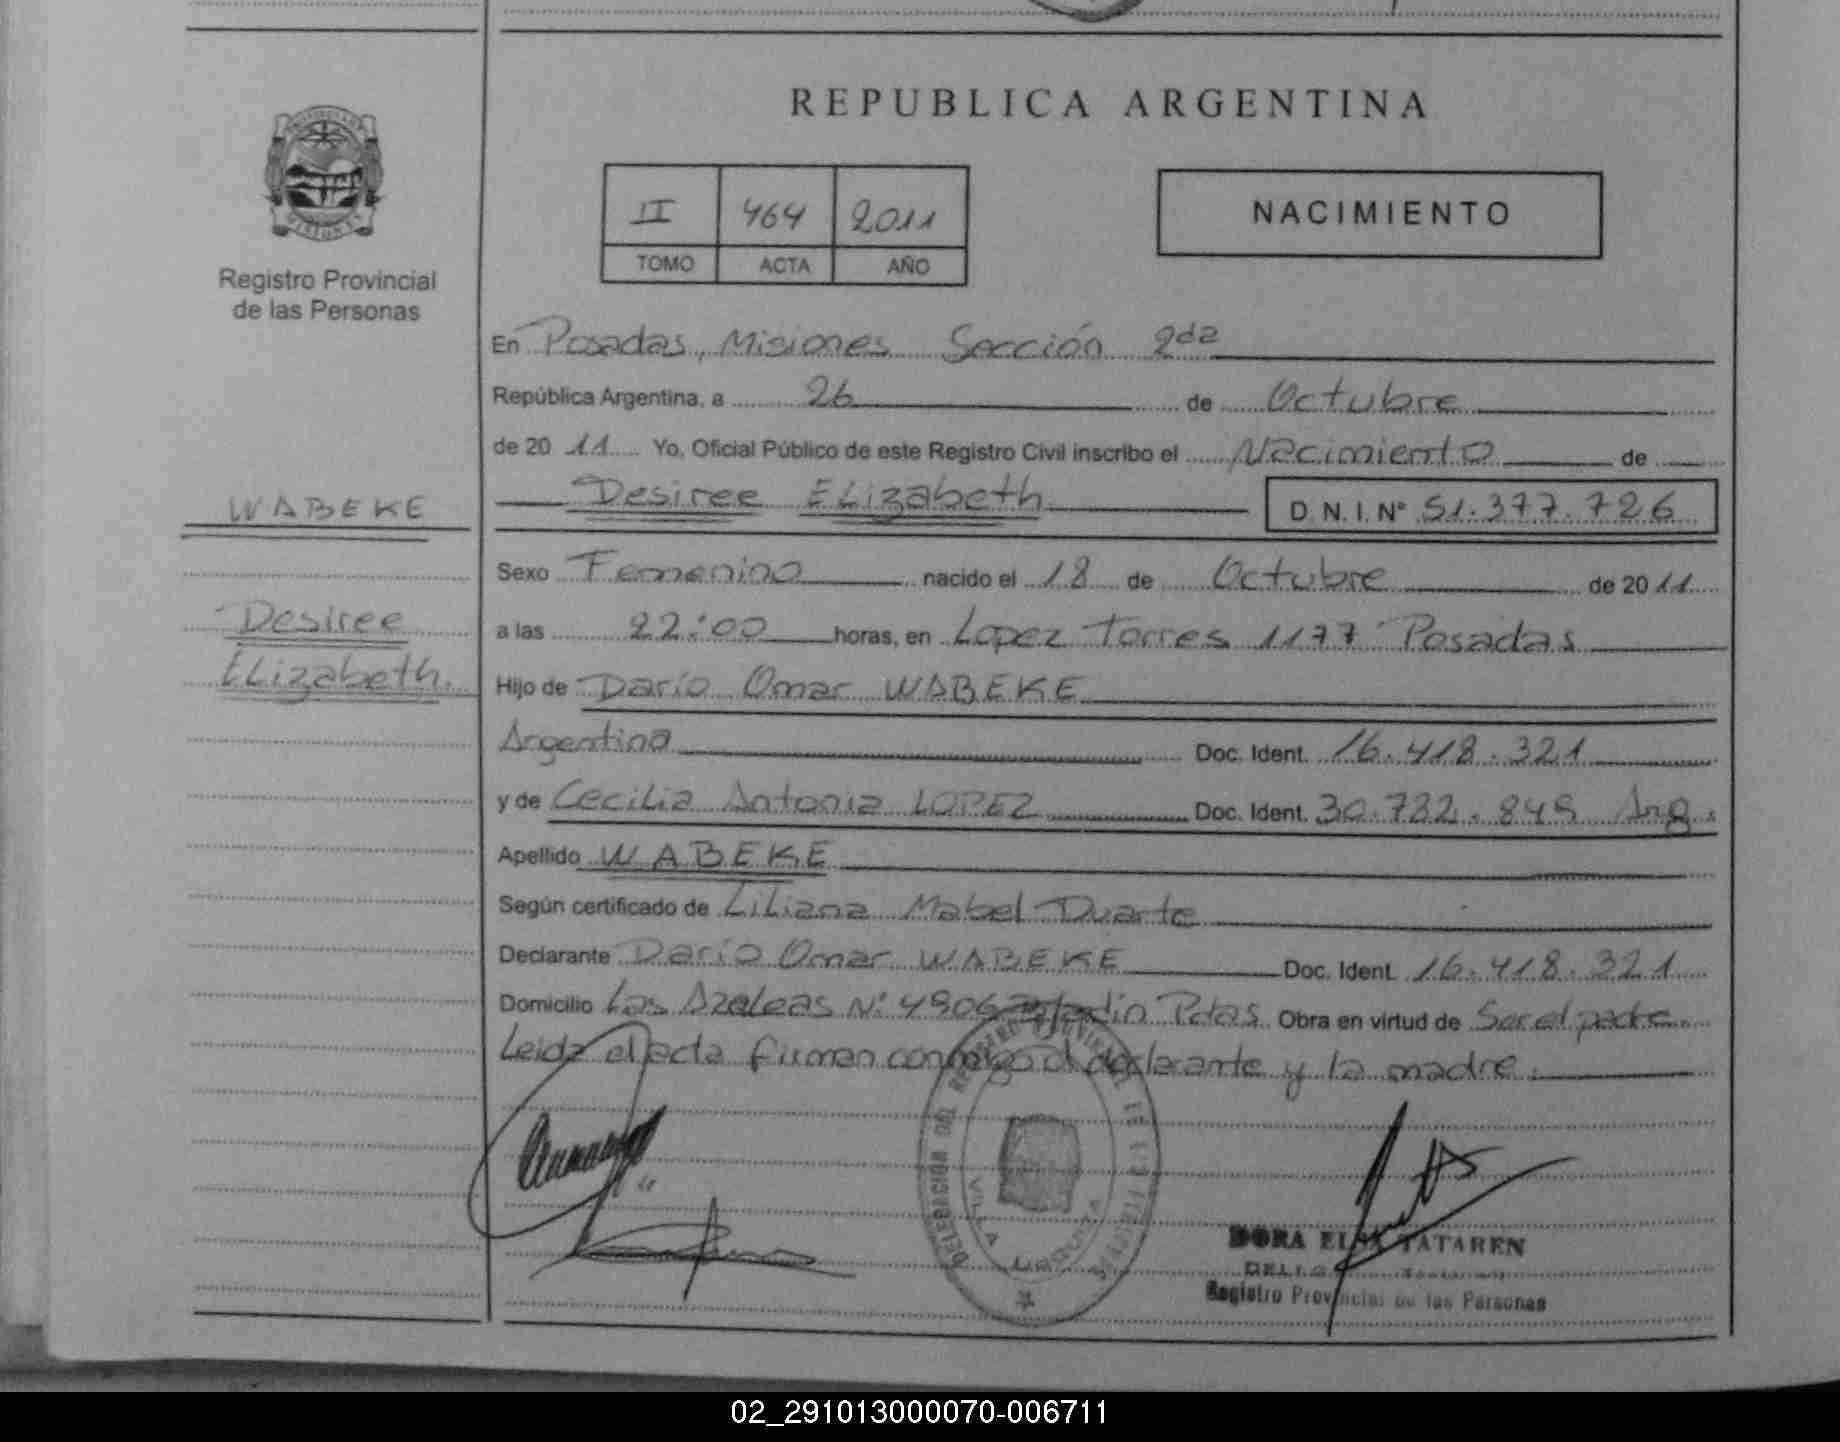 REPUBLICA ARGENTINA
II 464 2011
TOMO ACTA AÑO
NACIMIENTO
Registro Provincial
de las Personas
WABEKE
Desiree
Elizabeth.
En Posadas, Misiones Sección 2da
República Argentina, a 26 de Octubre
de 2011 Yo, Oficial Público de este Registro Civil inscribo el Nacimiento de
Desiree Elizabeth D.N.I. Nº 51.377.726
Sexo Femenino nacido el 18 de Octubre de 2011
a las 22:00 horas, en Lopez Torres 1177 Posadas
Hijo de Darío Omar WABEKE
Argentina Doc. Ident. 16.418.321
y de Cecilia Antonia LOPEZ Doc. Ident. 30.782.848 Arg.
Apellido WABEKE
Según certificado de Liliana Mabel Duarte
Declarante Darío Omar WABEKE Doc. Ident. 16.418.321
Domicilio Las Azaleas Nº 4906 Pdas Obra en virtud de Ser el padre.
Leida el acta firman conmigo el declarante y la madre.
DELEGACION DEL REGISTRO PROVINCIAL DE LAS PERSONAS
VILLA URQUIZA
DORA ELSA TATAREN
Registro Provincial de las Personas
02_291013000070-006711